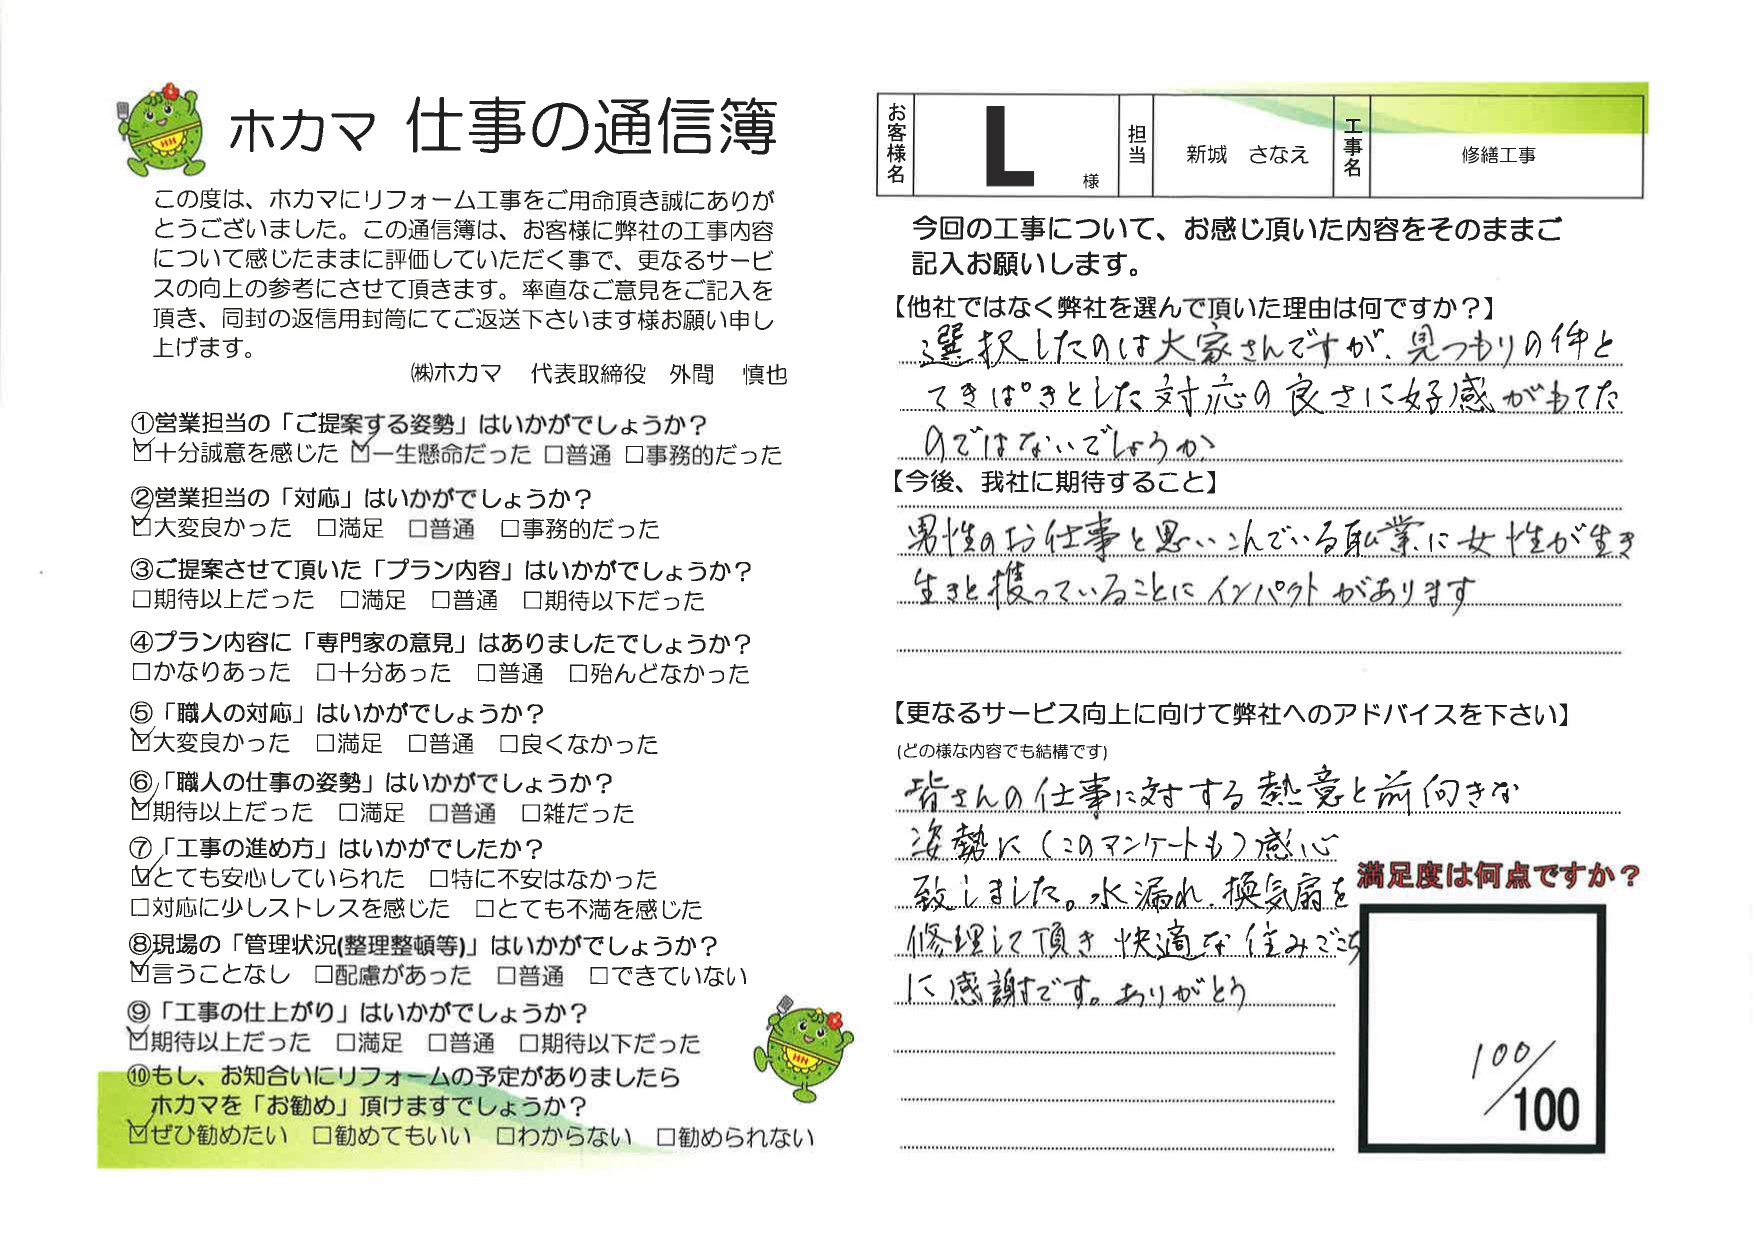 ホカマ 仕事の通信簿
この度は、ホカマにリフォーム工事をご用命頂き誠にありが
とうございました。この通信簿は、お客様に弊社の工事内容
について感じたままに評価していただく事で、更なるサービ
スの向上の参考にさせて頂きます。率直なご意見をご記入を
頂き、同封の返信用封筒にてご返送下さいます様お願い申し
上げます。
㈱ホカマ 代表取締役 外間 慎也
①営業担当の「ご提案する姿勢」はいかがでしょうか？
☑十分誠意を感じた ☑一生懸命だった □普通 □事務的だった
②営業担当の「対応」はいかがでしょうか？
☑大変良かった □満足 □普通 □事務的だった
③ご提案させて頂いた「プラン内容」はいかがでしょうか？
□期待以上だった □満足 □普通 □期待以下だった
④プラン内容に「専門家の意見」はありましたでしょうか？
□かなりあった □十分あった □普通 □殆んどなかった
⑤「職人の対応」はいかがでしょうか？
☑大変良かった □満足 □普通 □良くなかった
⑥「職人の仕事の姿勢」はいかがでしょうか？
☑期待以上だった □満足 □普通 □雑だった
⑦「工事の進め方」はいかがでしたか？
☑とても安心していられた □特に不安はなかった
□対応に少しストレスを感じた □とても不満を感じた
⑧現場の「管理状況(整理整頓等)」はいかがでしょうか？
☑言うことなし □配慮があった □普通 □できていない
⑨「工事の仕上がり」はいかがでしょうか？
☑期待以上だった □満足 □普通 □期待以下だった
⑩もし、お知合いにリフォームの予定がありましたら
ホカマを「お勧め」頂けますでしょうか？
☑ぜひ勧めたい □勧めてもいい □わからない □勧められない
お客様名 L 様 担当 新城 さなえ 工事名 修繕工事
今回の工事について、お感じ頂いた内容をそのままご
記入お願いします。
【他社ではなく弊社を選んで頂いた理由は何ですか？】
選択したのは大家さんですが、見つもりの件と
てきぱきとした対応の良さに好感がもてた
のではないでしょうか
【今後、我社に期待すること】
男性のお仕事と思いこんでいる職業に女性が生き
生きと携っていることにインパクトがあります
【更なるサービス向上に向けて弊社へのアドバイスを下さい】
(どの様な内容でも結構です)
皆さんの仕事に対する熱意と前向きな
姿勢に（このアンケートも）感心
致しました。水漏れ、換気扇を
修理して頂き快適な住みごこち
に感謝です。ありがとう
満足度は何点ですか？
100/
100
HH
HH